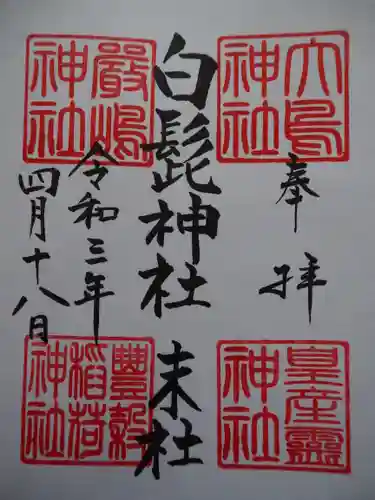 奉拝
大鳥神社
皇産靈神社
白髭神社 末社
嚴嶋神社
豊穀稲荷神社
令和三年
四月十八日